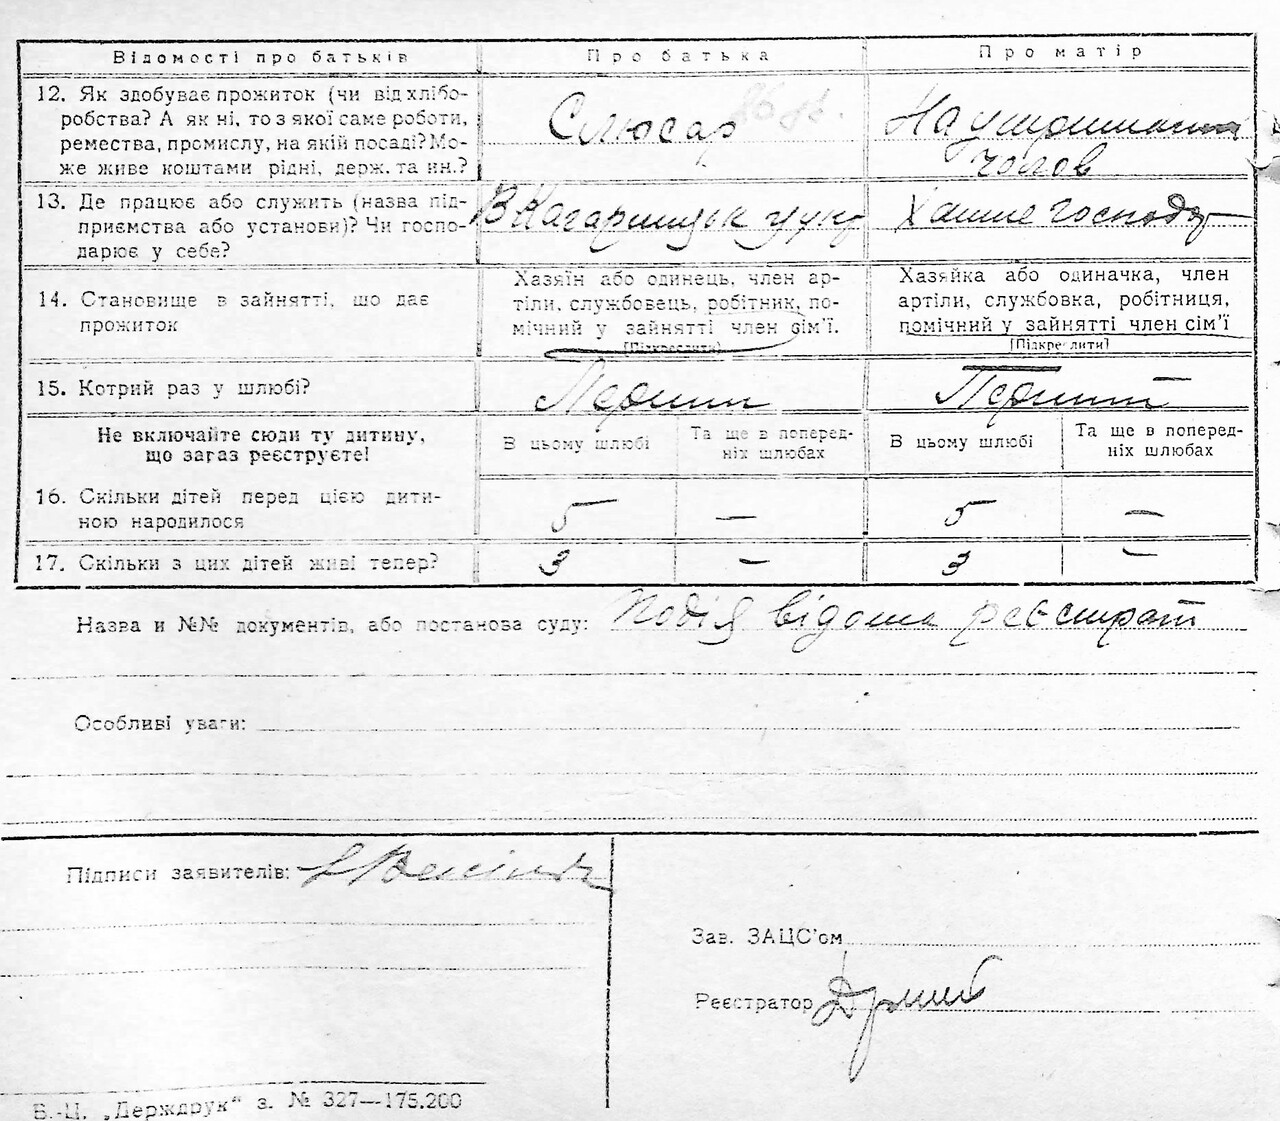 Відомості про батьків Про батька Про матір
12. Як здобуває прожиток (чи від хлібо-
робства? А як ні, то з якої саме роботи,
ремества, промислу, на якій посаді? Мо-
же живе коштами рідні, держ. та ин.?
Слюсар
На утриманні
чолов
13. Де працює або служить (назва під-
приємства або установи)? Чи госпо-
дарює у себе?
В
Хатне господ
14. Становище в зайнятті, що дає
прожиток
Хазяїн або одинець, член ар-
тіли, службовець, робітник, по-
мічний у зайнятті член сім'ї.
[Підкреслити]
Хазяйка або одиначка, член
артіли, службовка, робітниця,
помічний у зайнятті член сім'ї
[Підкреслити]
15. Котрий раз у шлюбі? Перший Перший
Не включайте сюди ту дитину,
що зараз реєструєте!
В цьому шлюбі
Та ще в поперед-
ніх шлюбах
В цьому шлюбі
Та ще в поперед-
ніх шлюбах
16. Скільки дітей перед цією дити-
ною народилося
5 — 5 —
17. Скільки з цих дітей живі тепер? 3 — 3 —
Назва и №№ документів, або постанова суду: Подія відома реєстрат
Особливі уваги:
Підписи заявителів:
Зав. ЗАЦС'ом
Реєстратор
В.-Ц. „Держдрук" з. № 327—175.200